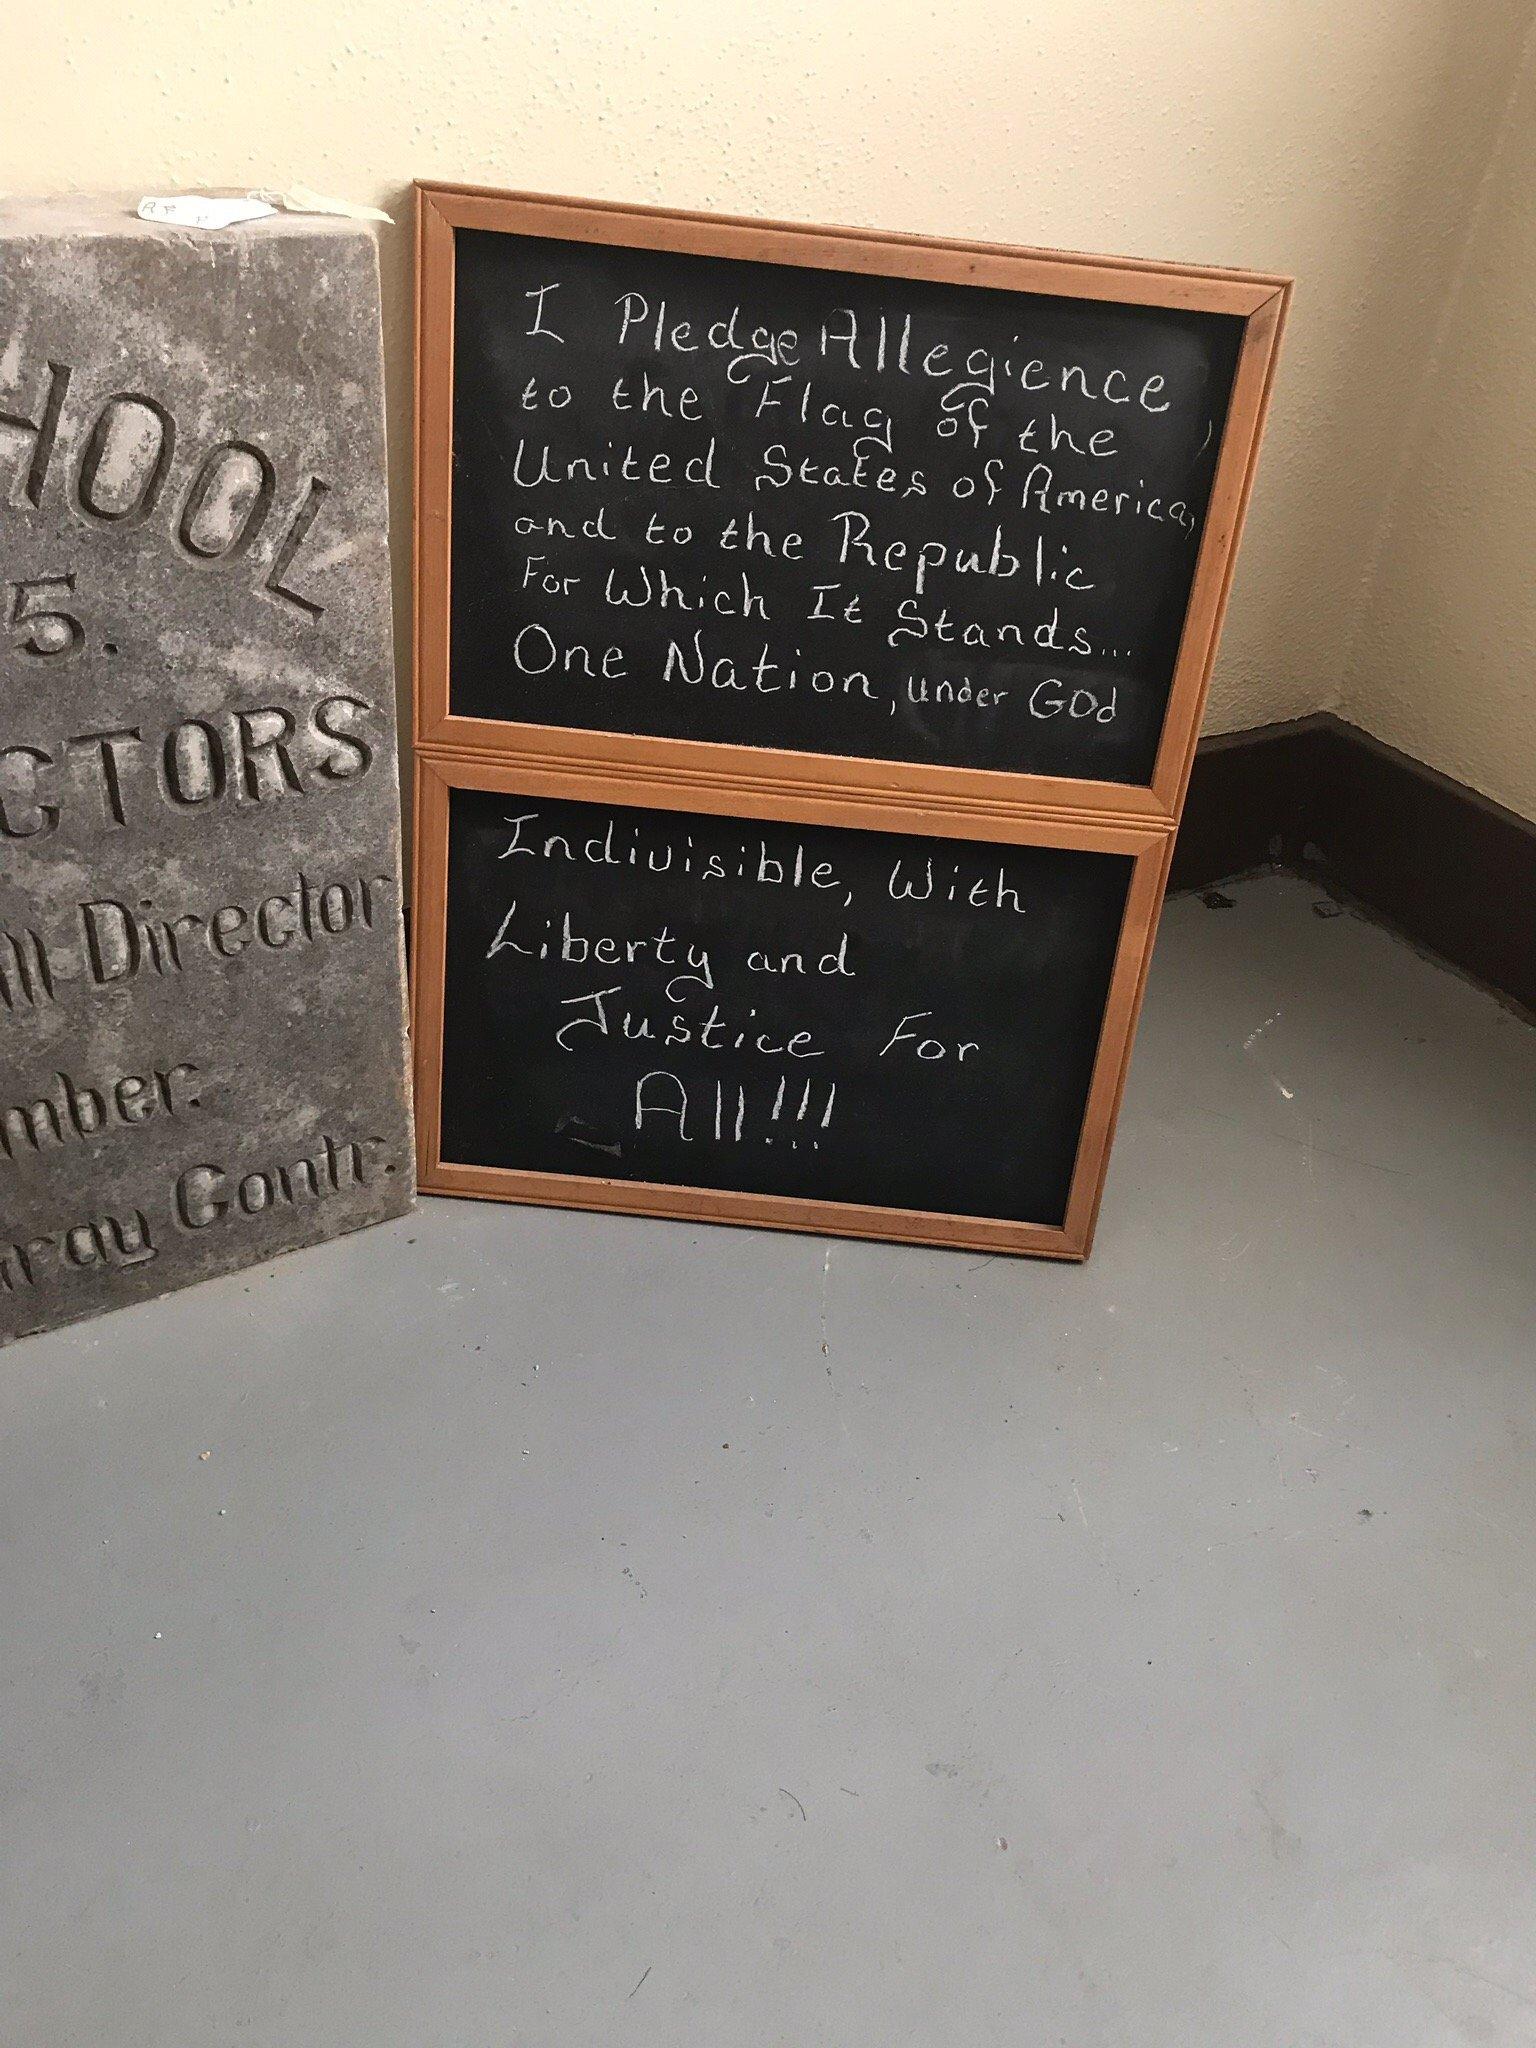 HOOL
5.
CTORS
ll Director
mber.
ray Contr.
I Pledge Allegience
to the Flag of the
United States of America,
and to the Republic
For Which It Stands...
One Nation, under God
Indivisible, With
Liberty and
Justice For
All!!!